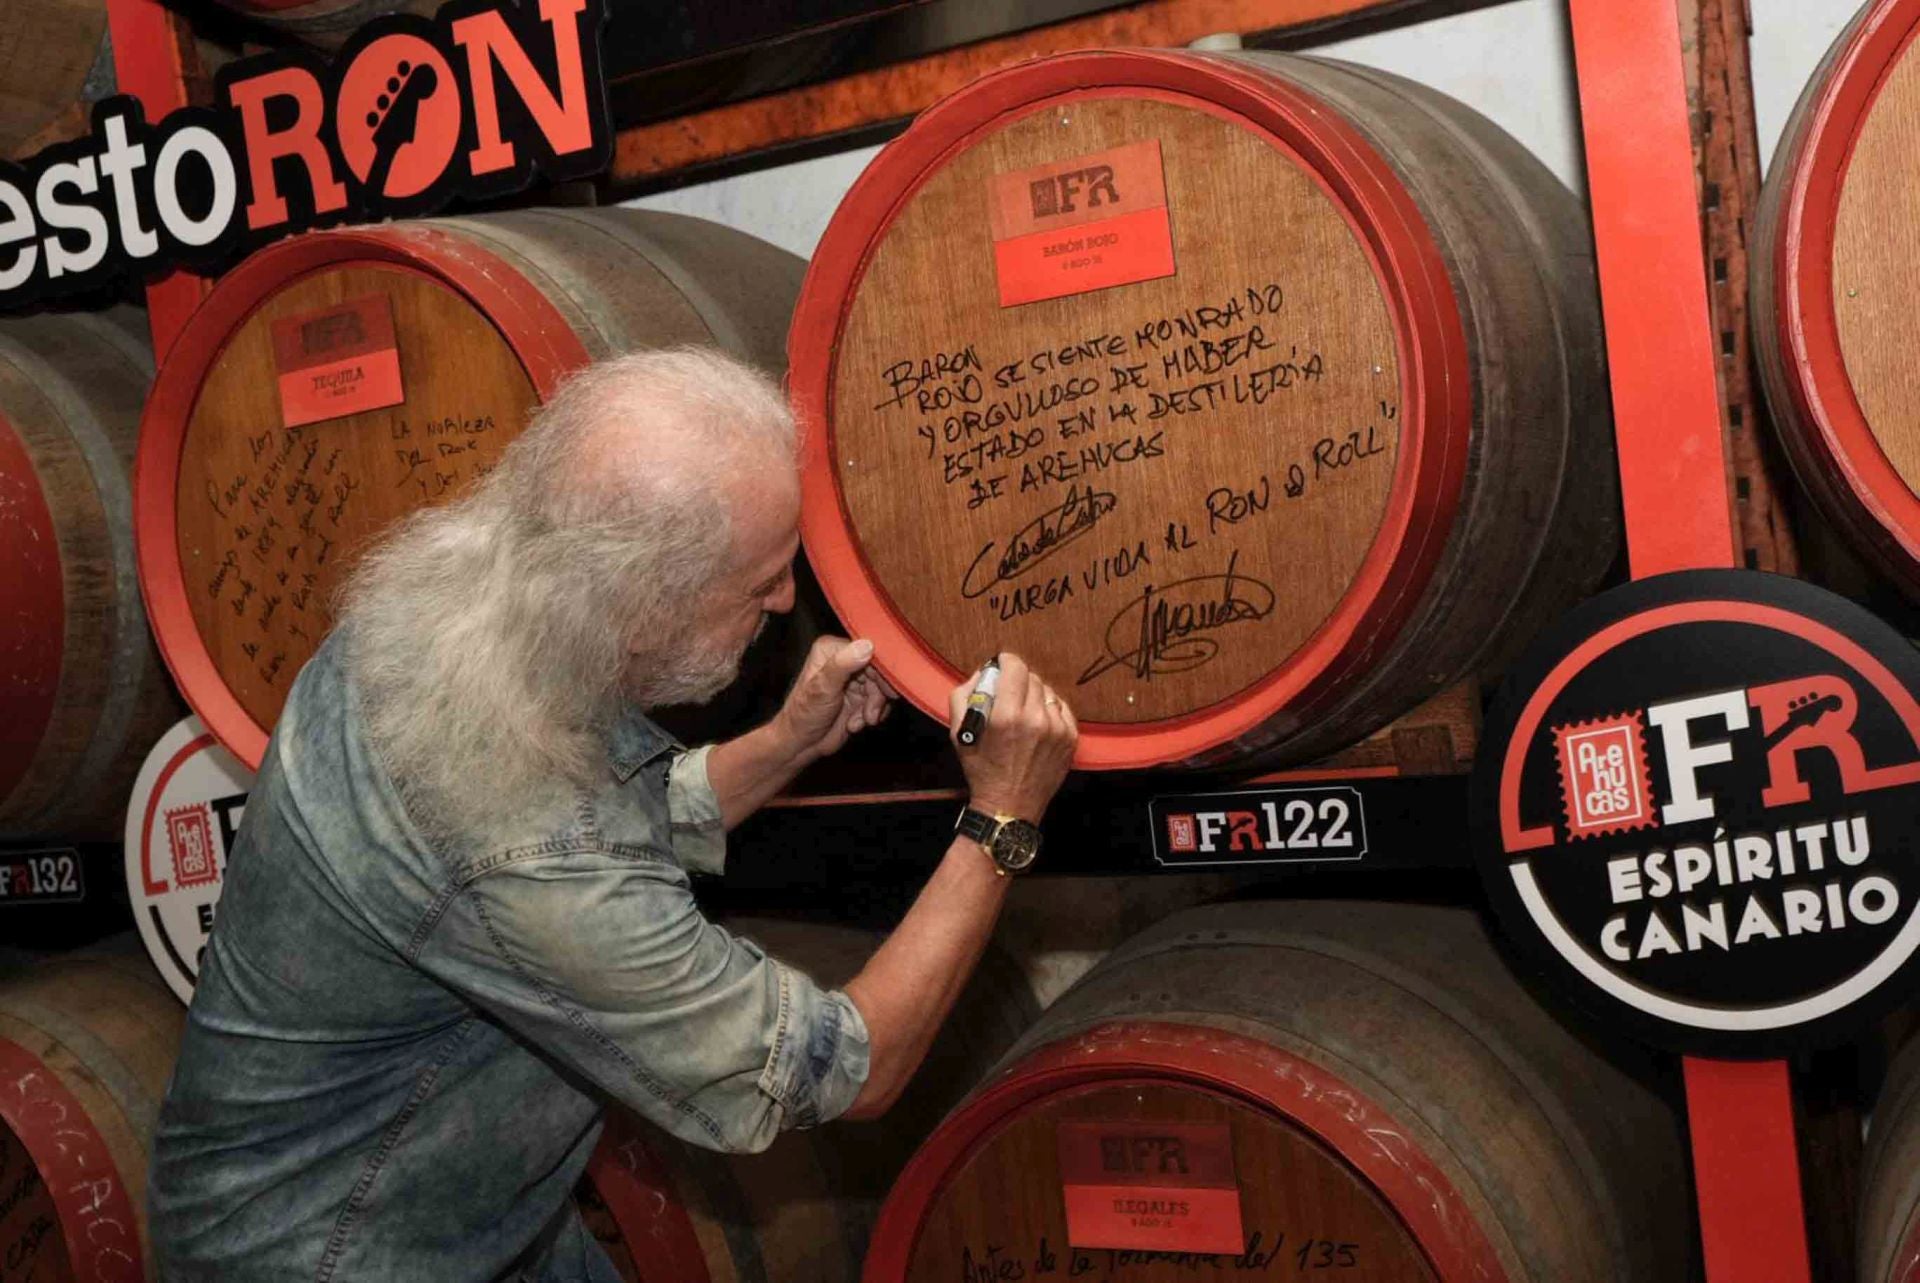 estoRON
FR
BARÓN ROJO
BARON
ROJO SE SIENTE HONRADO
Y ORGULLOSO DE HABER
ESTADO EN LA DESTILERÍA
DE AREHUCAS
"LARGA VIDA AL RON & ROLL"
FR
TEQUILA
Para los
amigos de AREHUCAS
desde 1884 alegrando
la vida de la gente con
Ron y Rock and Roll
LA NOBLEZA
DEL ROCK
Y DEL
FR132
Arehucas
FR122
Arehucas
FR
ESPÍRITU
CANARIO
FR
ILEGALES
Antes de la Tormenta del 135